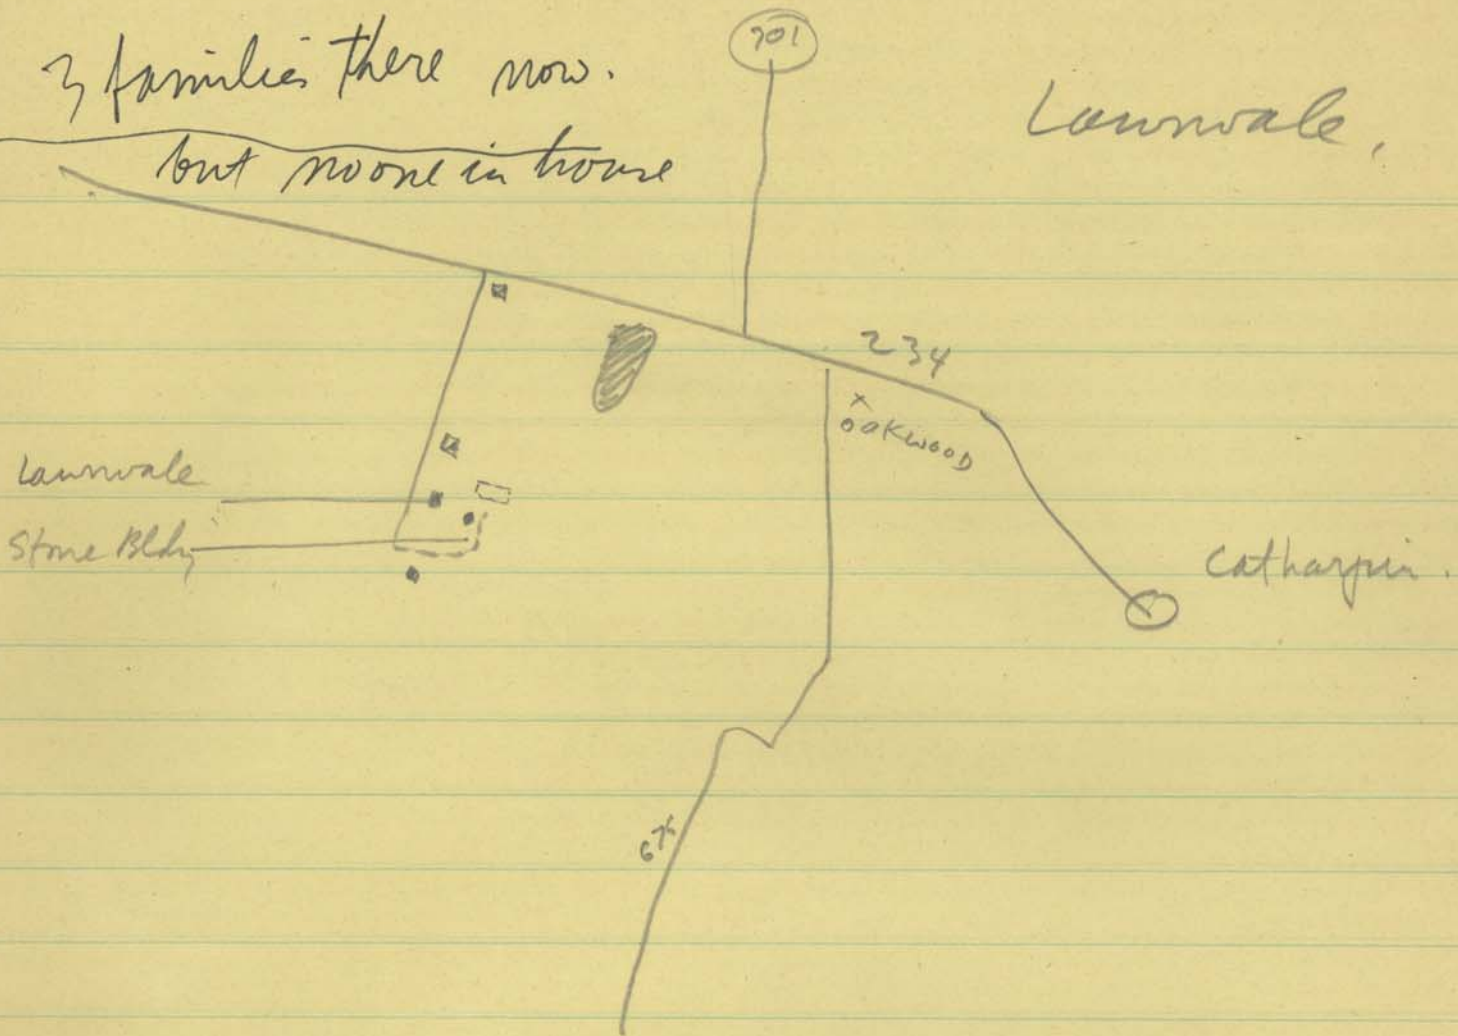 3 families there now.
but no one in house
701
Lawnvale,
234
x
OAKWOOD
Lawnvale
Stone Bldg
Catharpin.